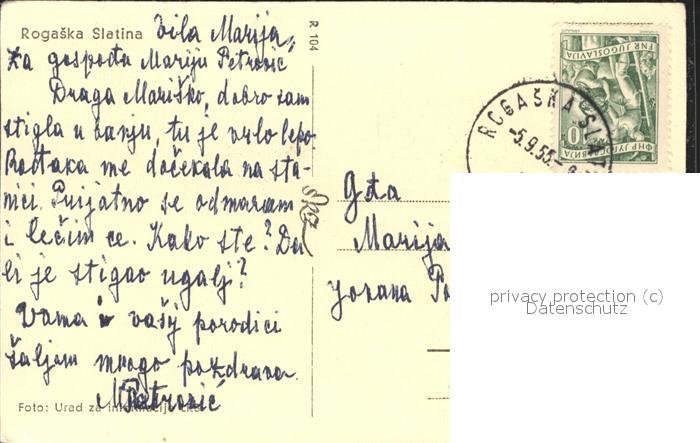 Rogaška Slatina Vila Marija,
Za gospođu Mariju Petrović
Draga Mariško, dobro sam
stigla u banju, tu je vrlo lepo
me dočekala na sta-
nici. Prijatno se odmaram
i lečim se. Kako ste? Da
li je stigao ugalj?
Vama i vašoj porodici
šaljem mnogo pozdrava
M Petrović
Foto: Urad za informacije
R 104
Gđa
Marija
Jovana
FNR JUGOSLAVIJA
ФНР ЈУГОСЛАВИЈА
10
ROGAŠKA SLAT
-5.9.55
privacy protection (c)
Datenschutz